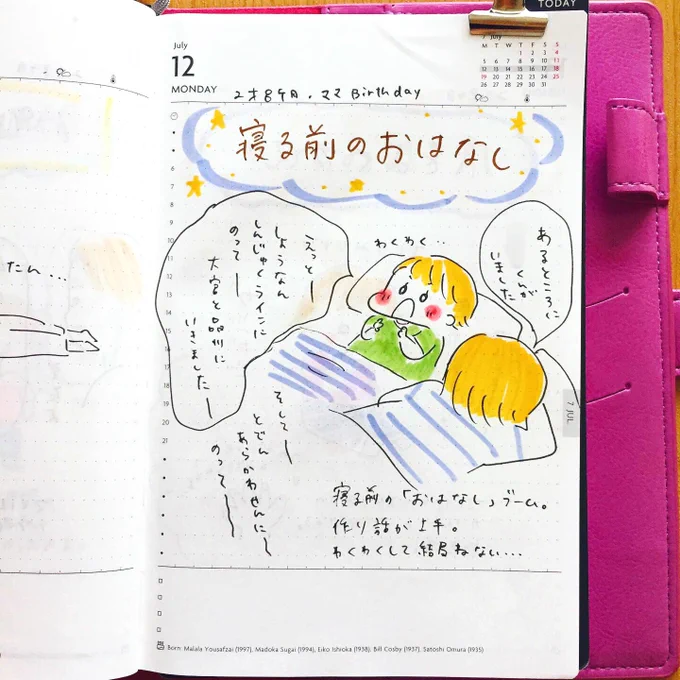 TODAY
July
12
MONDAY
7 July
M T W T F S S
1 2 3 4
5 6 7 8 9 10 11
12 13 14 15 16 17 18
19 20 21 22 23 24 25
26 27 28 29 30 31
2才8ヶ月・ママ Birthday
寝る前のおはなし
あるところに
くんが
いました
わくわく・・
えっとー
しょうなん
しんじゅくラインに
のってー
大宮と品川に
いきましたー
そしてー
とでん
あらかわせんにー
のってー
寝る前の「おはなし」ブーム。
作り話が上手。
わくわくして結局ねない…
たん…
7 JUL
4
5
6
7
8
9
10
11
12
13
14
15
16
17
18
19
20
21
Born: Malala Yousafzai (1997), Madoka Sugai (1994), Eiko Ishioka (1938), Bill Cosby (1937), Satoshi Omura (1935)